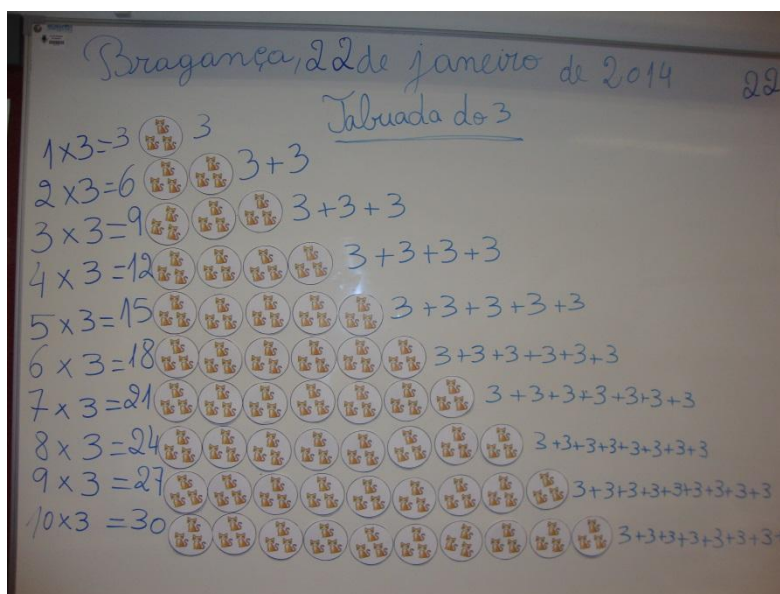 Bragança, 22 de janeiro de 2014 22
Tabuada do 3
1x3=3 3
2x3=6 3+3
3x3=9 3+3+3
4x3=12 3+3+3+3
5x3=15 3+3+3+3+3
6x3=18 3+3+3+3+3+3
7x3=21 3+3+3+3+3+3+3
8x3=24 3+3+3+3+3+3+3+3
9x3=27 3+3+3+3+3+3+3+3+3
10x3=30 3+3+3+3+3+3+3+